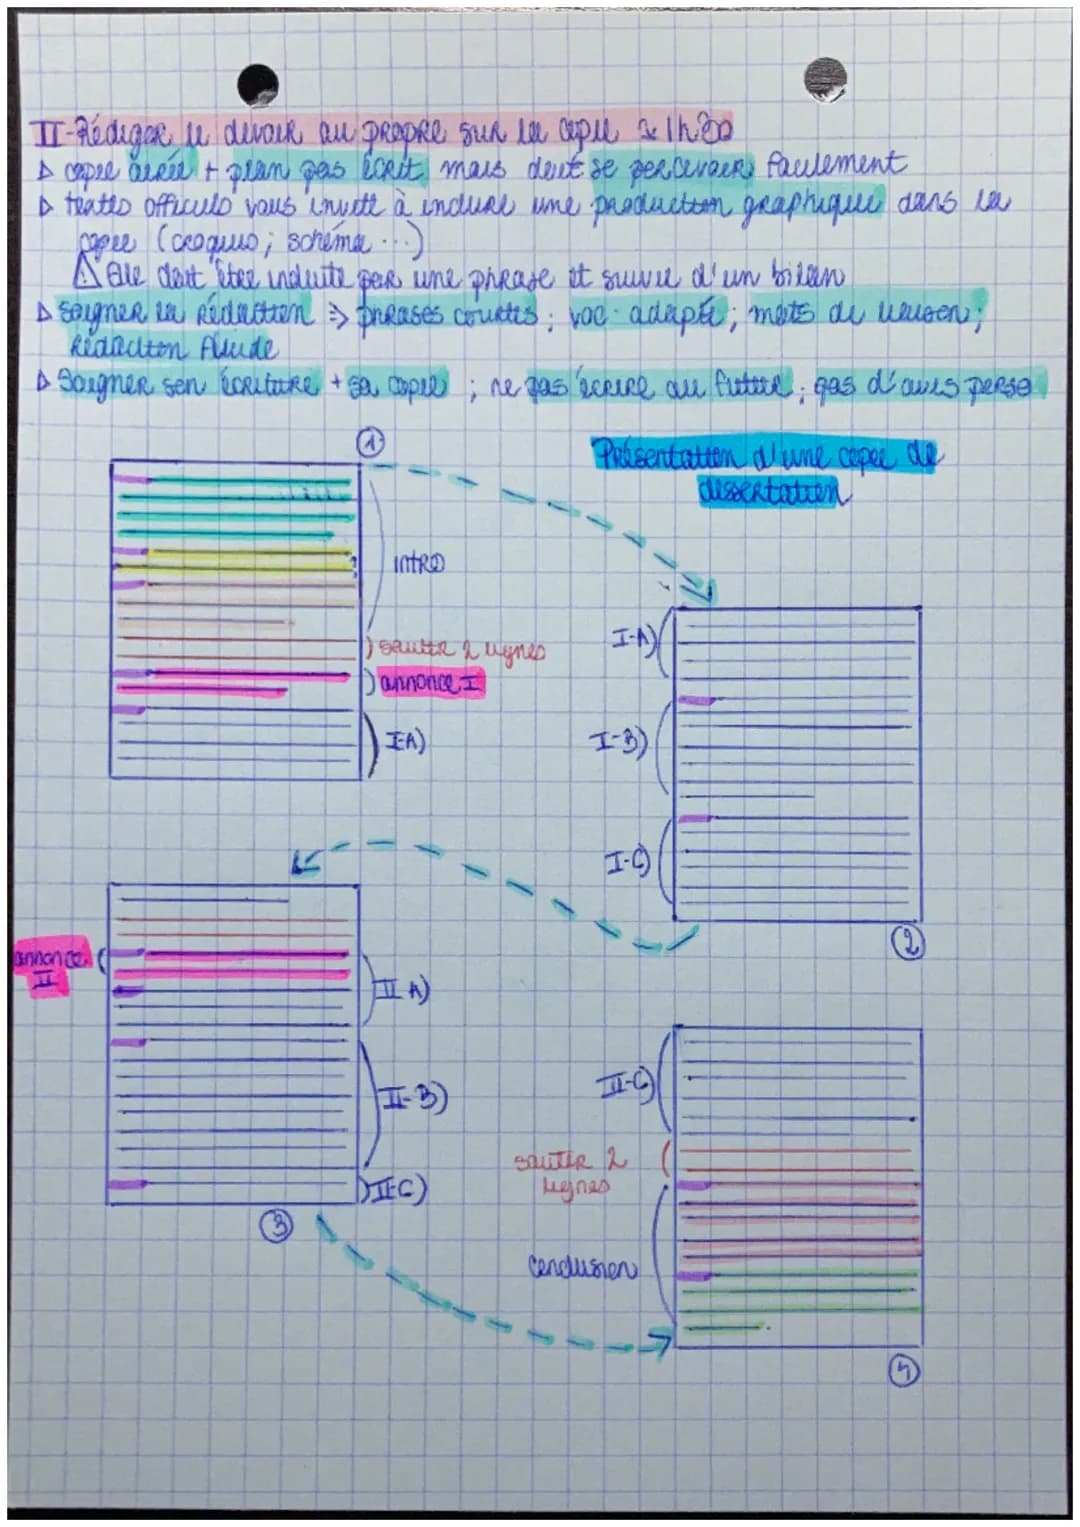 II-Rédiger le devoir au propre sur la copie ≈ 1h30
▷ copie aérée + plan pas écrit mais doit se percevoir facilement
▷ textes officiels vous invite à inclure une production graphique dans la
copie (croquis ; schéma ...)
⚠ Elle doit être induite par une phrase et suivie d'un bilan
▷ soigner la rédaction => phrases courtes ; voc. adapté ; mots de liaison ;
rédaction fluide
▷ Soigner son écriture + sa copie ; ne pas écrire au futur ; pas d'avis perso
①
Présentation d'une copie de
dissertation
intro
sauter 2 lignes
annonce I
I-A)
I-A)
I-B)
I-C)
②
annonce
II
II A)
II-B)
II-C)
③
II-C)
sauter 2
lignes
conclusion
④